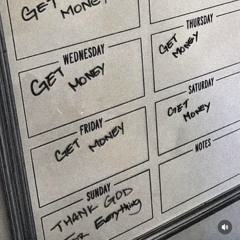 GET
MONEY
WEDNESDAY
GET
MONEY
THURSDAY
GET
MONEY
FRIDAY
GET
MONEY
SATURDAY
GET
MONEY
SUNDAY
THANK GOD
FOR Everything
NOTES